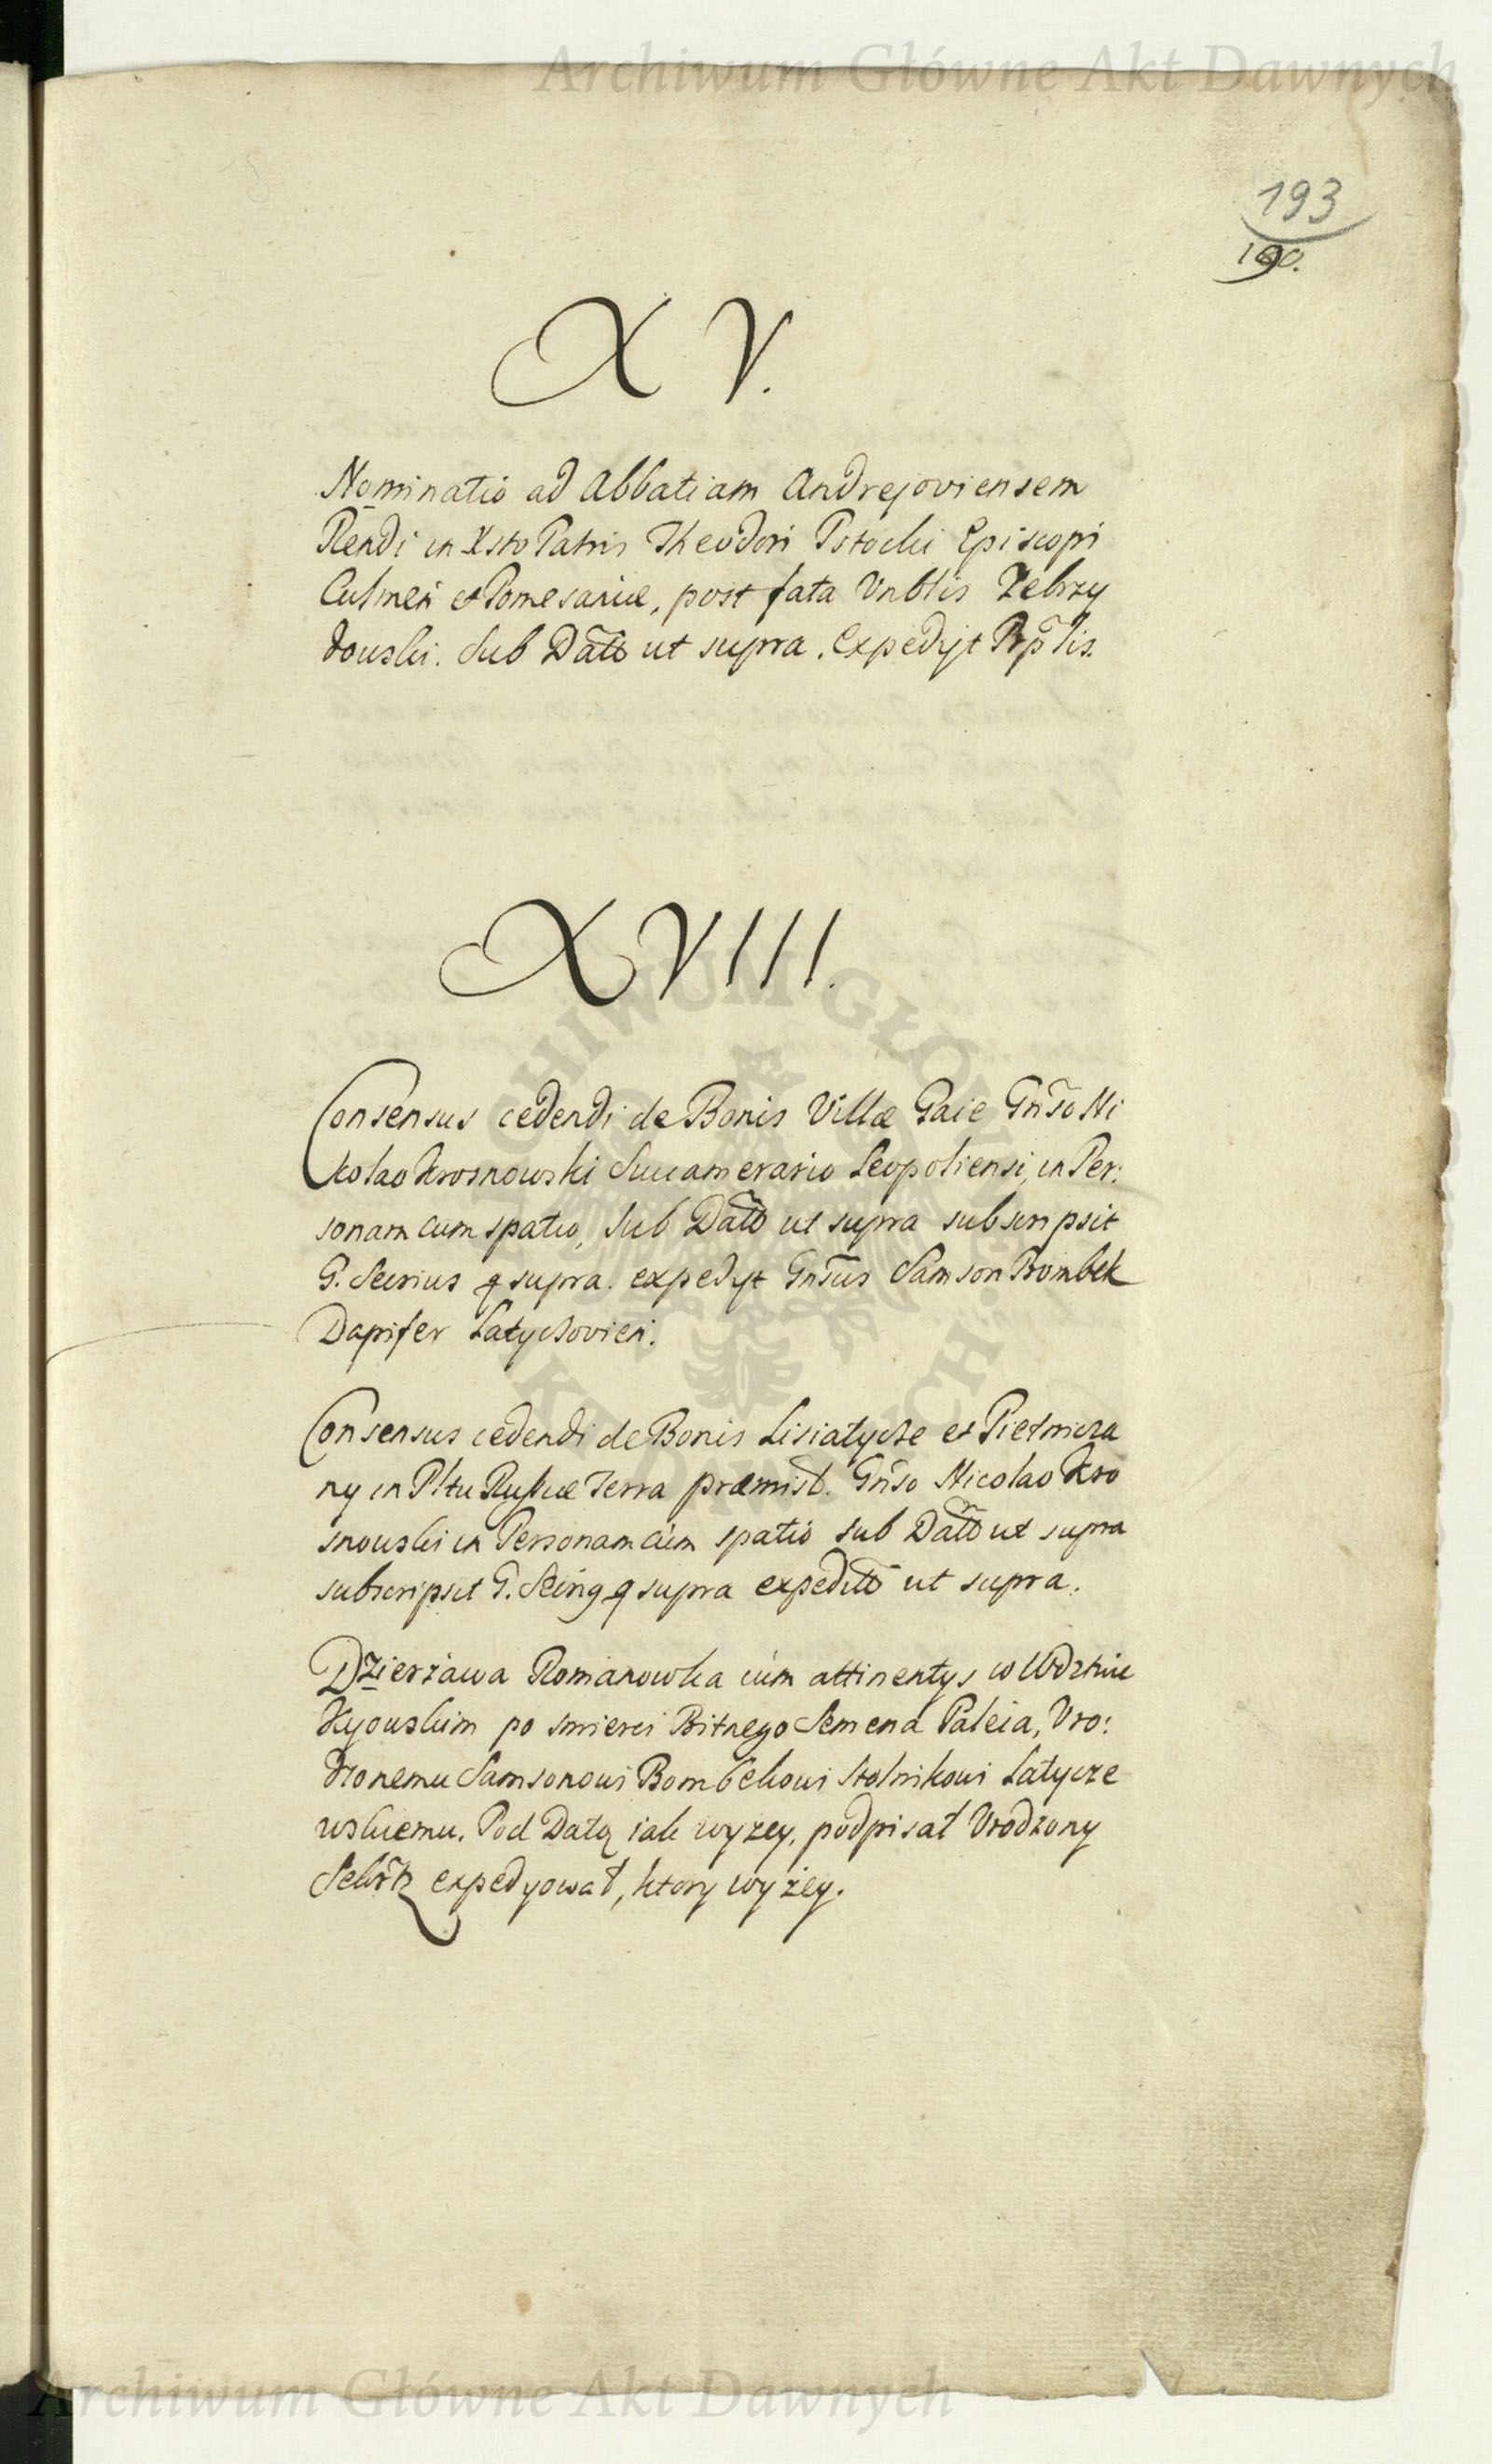 Archiwum Główne Akt Dawnych
193
190.
X V.
Nominatio ad Abbatiam Andrejoviensem
Rendi in Xsto Patris Theodori Potocki Episcopi
Culmen et Pomesaniae, post fata Vnblis Zebrzy
dowski. Sub Datto ut supra. Expedijt
XVIII.
Consensus cedendi de Bonis Villæ Gaie Gnso Ni
kolao Krosnowski Succamerario Leopoliensi, in Per:
sonam cum spatio, Sub Datto ut supra subscripsit
G. Secrius q supra. expedyt Gnsus Samson Brombek
Dapifer Latyczovien.
Consensus cedendi de Bonis Lisiatycze et Pietnicza
ny in Pltu Russiæ Terra præmisl. Gnso Nicolao Kro
snowski in Personam cum spatio sub Datto ut supra
subscripsit G. q supra expeditt ut supra.
Dzierżawa Romanowka cum attinentys w Wdztwie
Kyowskim po smierci Bitnego Semena Paleia, Vro:
dzonemu Samsonowi Bombekowi Stolnikowi Latycze
wskiemu. Pod Datą iak wyzey, podpisał Vrodzony
Sekrtz expedyował, ktory wyżey.
ARCHIWUM GŁÓWNE AKT DAWNYCH
Archiwum Główne Akt Dawnych